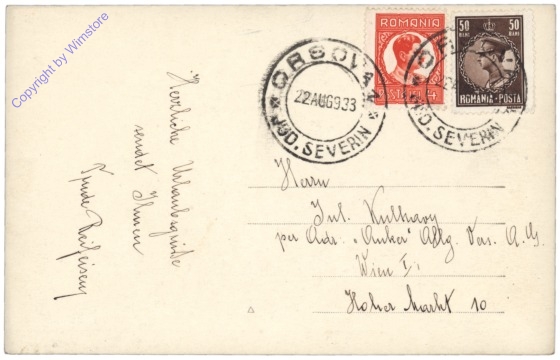 Copyright by Winstore
ROMANIA
POSTA 4
50 BANI 50 BANI
ROMANIA-POSTA
ORSOVA
22 AUG 933
JUD. SEVERIN
JUD. SEVERIN
Herrliche Urlaubsgrüße
sendet Ihnen
Trude
Herrn
Jul. Kulhavy
per Adr. „Anker" Allg. Vers. A. G.
Wien I.
Hoher Markt 10